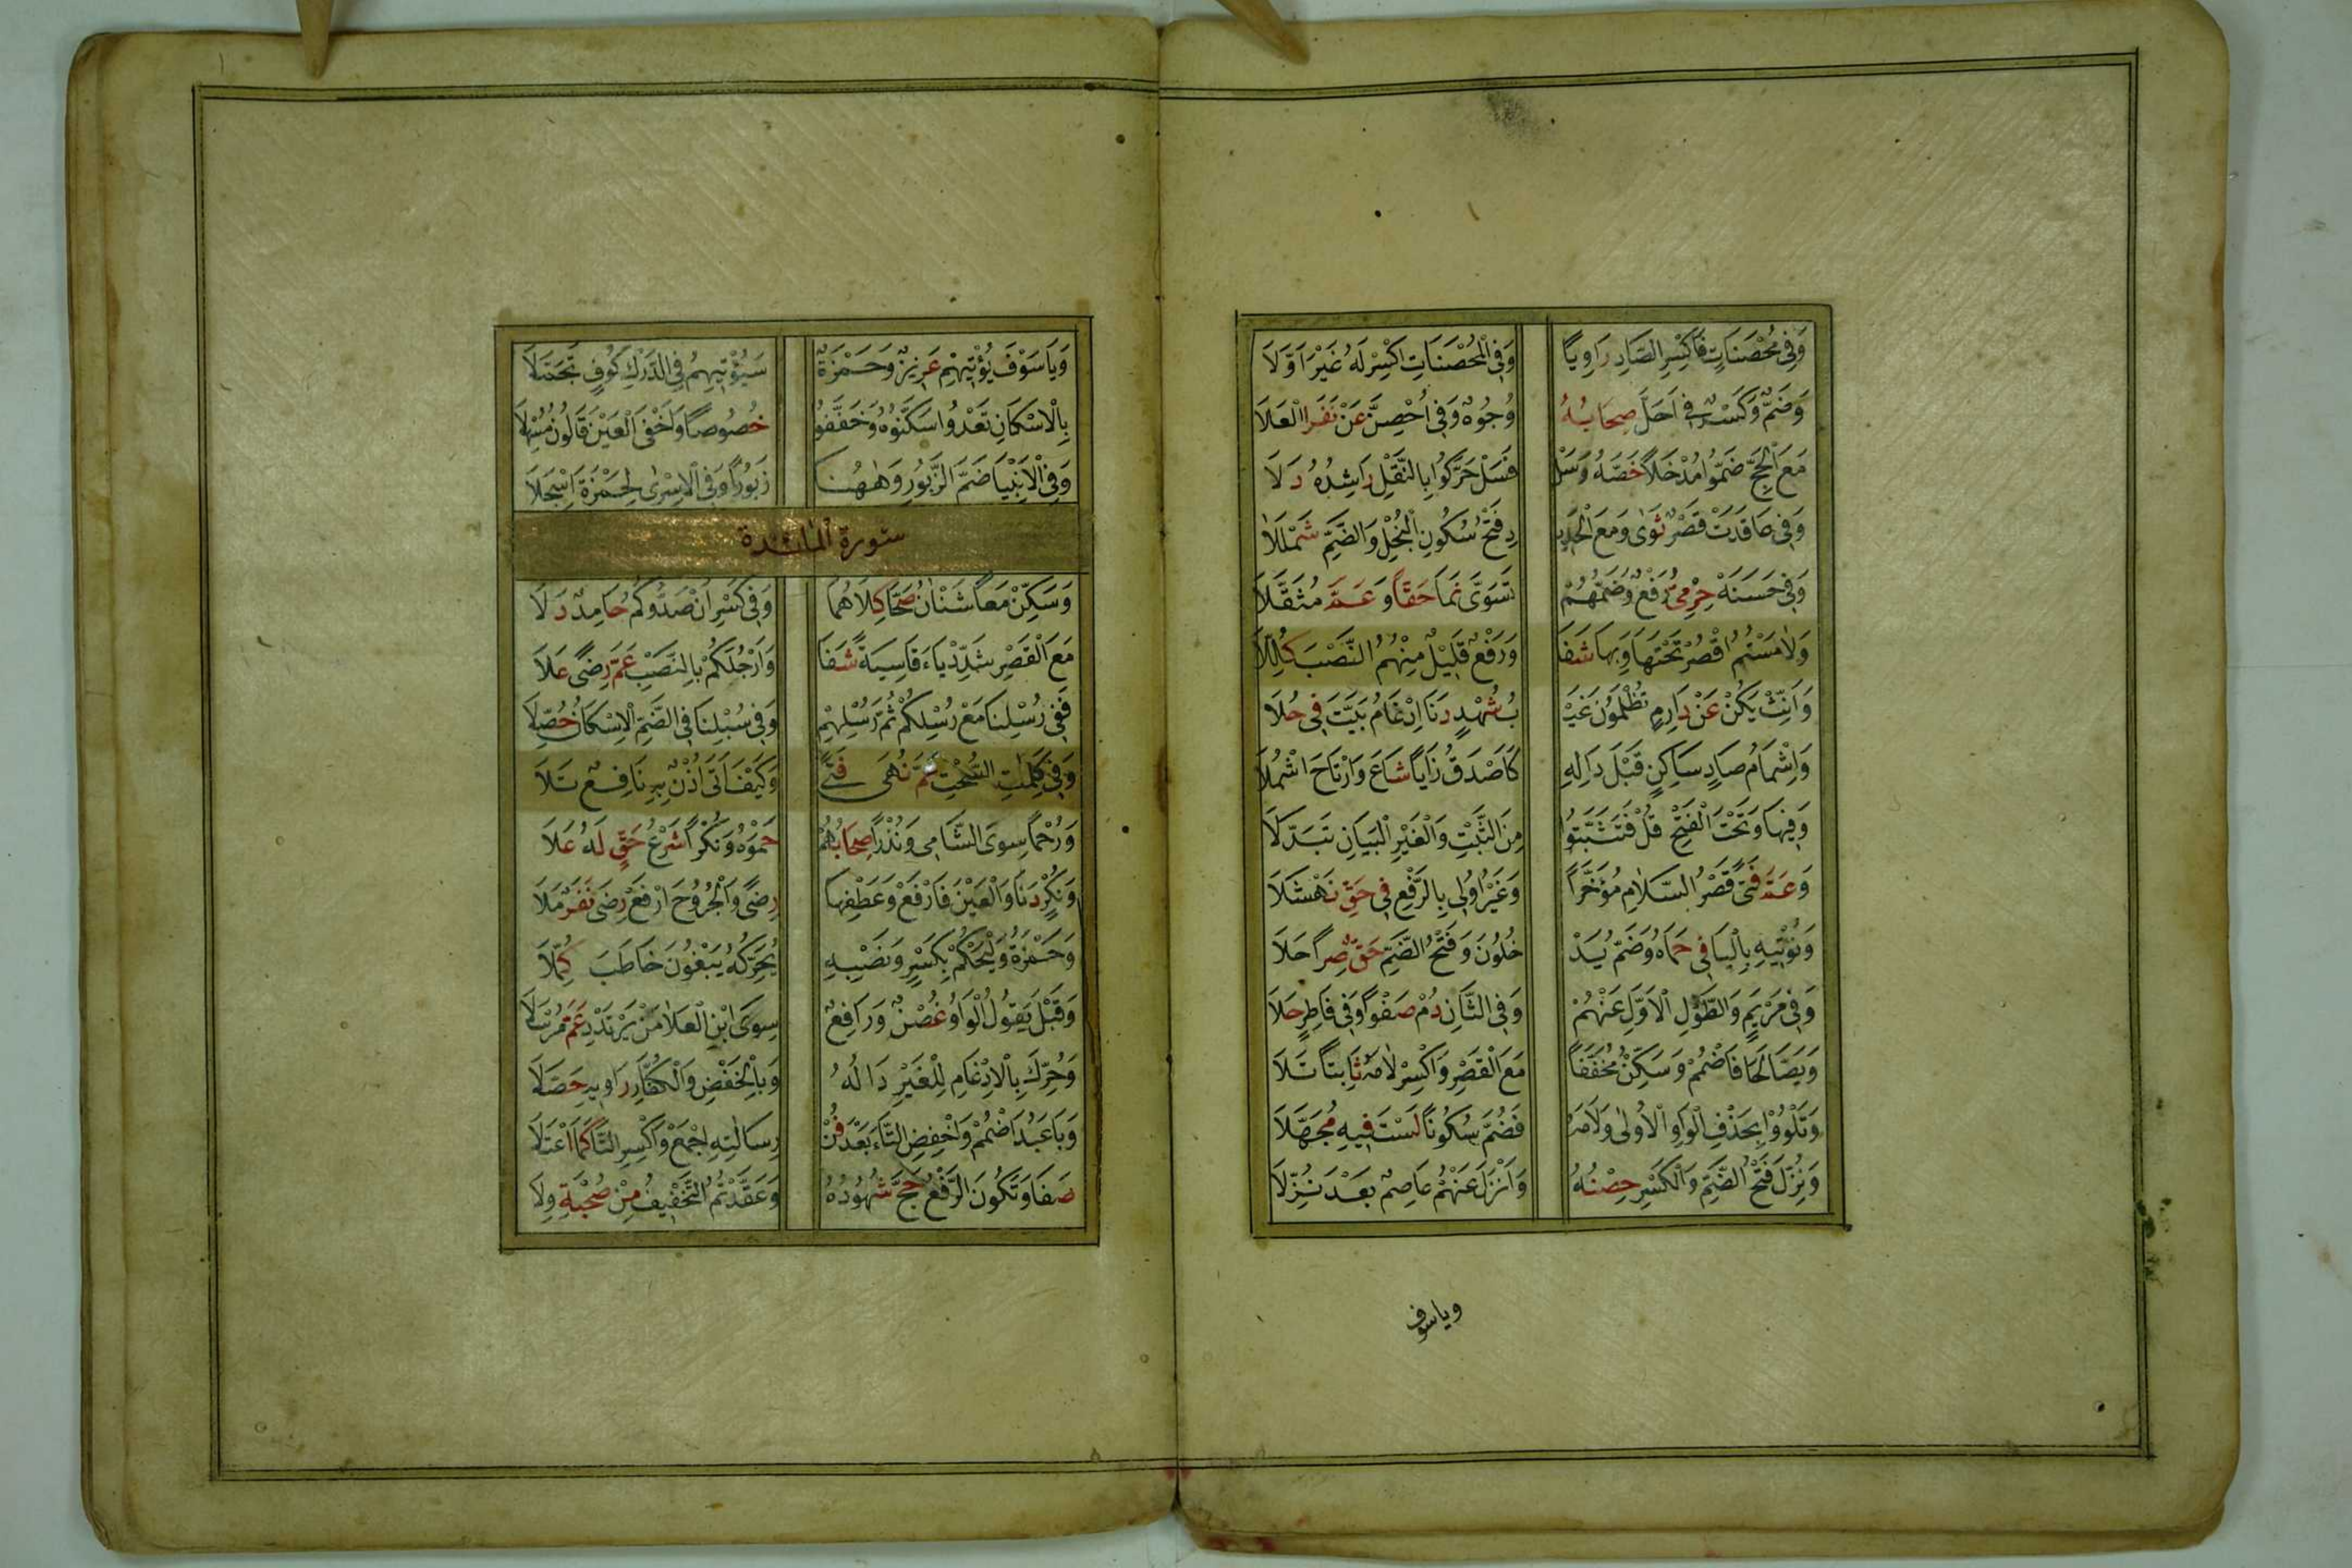 وَفِي مُحْصَنَاتٍ فَاكْسِرِ الصَّادَ رَاوِيًا وَفِي الْمُحْصَنَاتِ اكْسِرْ لَهُ غَيْرَ اَوَّلَا
وَضَمٌّ وَكَسْرٌ فِي اَحَلَّ صِحَابُهُ وُجُوهٌ وَفِي اُحْصِنَّ عَنْ نَفَرِ الْعَلَا
مَعَ الْحَجِّ ضَمُّوا مُدْخَلًا خَصَّهُ وَسَلْ فَسَلْ حَرَّكُوا بِالنَّقْلِ رَاشِدُهُ دَلَا
وَفِي عَاقَدَتْ قَصْرٌ ثَوَى وَمَعَ الْحَدِيدِ فَتْحُ سُكُونِ الْبُخْلِ وَالضَّمِّ شَمْلَلَا
وَفِي حَسَنَهْ حِرْمِيُّ رَفْعٌ وَضَمُّهُمْ تَسَوَّى نَمَا حَقًّا وَعَمَّ مُثَقَّلَا
وَلَامَسْتُمُ اقْصُرْ تَحْتَهَا وَبِهَا شَفَا وَرَفْعُ قَلِيلٌ مِنْهُمُ النَّصْبَ كُلِّلَا
وَاَنِّثْ يَكُنْ عَنْ دَارِمٍ تُظْلَمُونَ غَيْـ ـبُ شُهْدٍ دَنَا اِدْغَامُ بَيَّتَ فِي حُلَا
وَاِشْمَامُ صَادٍ سَاكِنٍ قَبْلَ دَالِهِ كَاَصْدَقُ زَايًا شَاعَ وَارْتَاحَ اشْمُلَا
وَفِيهَا وَتَحْتَ الْفَتْحِ قُلْ فَتَثَبَّتُوا مِنَ الثَّبْتِ وَالْغَيْرِ الْبَيَانِ تَبَدَّلَا
وَعَمَّ فَتًى قَصْرُ السَّلَامَ مُؤَخَّرًا وَغَيْرُ اُولِي بِالرَّفْعِ فِي حَقِّ نَهْشَلَا
وَنُؤْتِيهِ بِالْيَا فِي حِمَاهُ وَضَمُّ يَدْ خُلُونَ وَفَتْحُ الضَّمِّ حَقٌّ صِرًا حَلَا
وَفِي مَرْيَمٍ وَالطَّوْلِ الْاَوَّلِ عَنْهُمْ وَفِي الثَّانِ دُمْ صَفْوًا وَفِي فَاطِرٍ حَلَا
وَيَصَّالَحَا فَاضْمُمْ وَسَكِّنْ مُخَفِّفًا مَعَ الْقَصْرِ وَاكْسِرْ لَامَهُ ثَابِتًا تَلَا
وَتَلْوُوا بِحَذْفِ الْوَاوِ الْاُولَى وَلَامَهُ فَضُمَّ سُكُونًا لَسْتَ فِيهِ مُجَهَّلَا
وَنُزِّلَ فَتْحُ الضَّمِّ وَالْكَسْرِ حِصْنُهُ وَاَنْزَلَ عَنْهُمْ عَاصِمٌ بَعْدَ نُزِّلَا
وياسوف
وَيَاسَوْفَ يُؤْتِيهِمْ عَزِيزٌ وَحَمْزَةٌ سَيُؤْتِيهِمُ فِي الدَّرْكِ كُوفٍ تَحَمَّلَا
بِالْاِسْكَانِ تَعْدُوا سَكِّنُوهُ وَخَفِّفُوا خُصُوصًا وَاَخْفَى الْعَيْنَ قَالُونُ مُسْهِلَا
وَفِي الْاَنْبِيَا ضَمُّ الزَّبُورِ وَهٰهُنَا زَبُورًا وَفِي الْاِسْرٰى لِحَمْزَةَ اُسْجِلَا
سورة المائدة
وَسَكِّنْ مَعًا شَنْاٰنُ صَحَّا كِلَاهُمَا وَفِي كَسْرِ اَنْ صَدُّوكُمُ حَامِدٌ دَلَا
مَعَ الْقَصْرِ شَدِّدْ يَاءَ قَاسِيَةً شَفَا وَاَرْجُلَكُمْ بِالنَّصْبِ عَمَّ رِضًى عَلَا
فَفِي رُسْلِنَا مَعْ رُسْلِكُمْ ثُمَّ رُسْلِهِمْ وَفِي سُبْلِنَا فِي الضَّمِّ الْاِسْكَانُ حُصِّلَا
وَفِي كَلِمَاتِ السُّحْتِ عَمَّ نُهَى فَتًى وَكَيْفَ اَتَى اُذْنٌ بِهِ نَافِعٌ تَلَا
وَرُحْمًا سِوَى الشَّامِي وَنُذْرًا صِحَابُهُمْ حَمَوْهُ وَنُكْرًا شَرْعُ حَقٍّ لَهُ عَلَا
وَنُكْرٍ دَنَا وَالْعَيْنَ فَارْفَعْ وَعَطْفَهَا رِضًى وَالْجُرُوحَ ارْفَعْ رِضَى نَفَرٍ مَلَا
وَحَمْزَةُ وَلْيَحْكُمْ بِكَسْرٍ وَنَصْبِهِ يُحَرِّكُهُ يَبْغُونَ خَاطَبَ كُمَّلَا
وَقَبْلَ يَقُولُ الْوَاوُ غُصْنٌ وَرَافِعٌ سِوَى ابْنِ الْعَلَا مَنْ يَرْتَدِدْ عَمَّ مُرْسَلَا
وَحُرِّكَ بِالْاِدْغَامِ لِلْغَيْرِ دَالُهُ وَبِالْخَفْضِ وَالْكُفَّارَ رَاوِيهِ حَصَّلَا
وَبَا عَبُدَ اضْمُمْ وَاخْفِضِ التَّاءَ بَعْدَ فُزْ رِسَالَتِهِ اجْمَعْ وَاكْسِرِ التَّا كَمَا اعْتَلَا
صَفَا وَتَكُونَ الرَّفْعُ حَجَّ شُهُودُهُ وَعَقَّدْتُمُ التَّخْفِيفُ مِنْ صُحْبَةٍ وِلَا